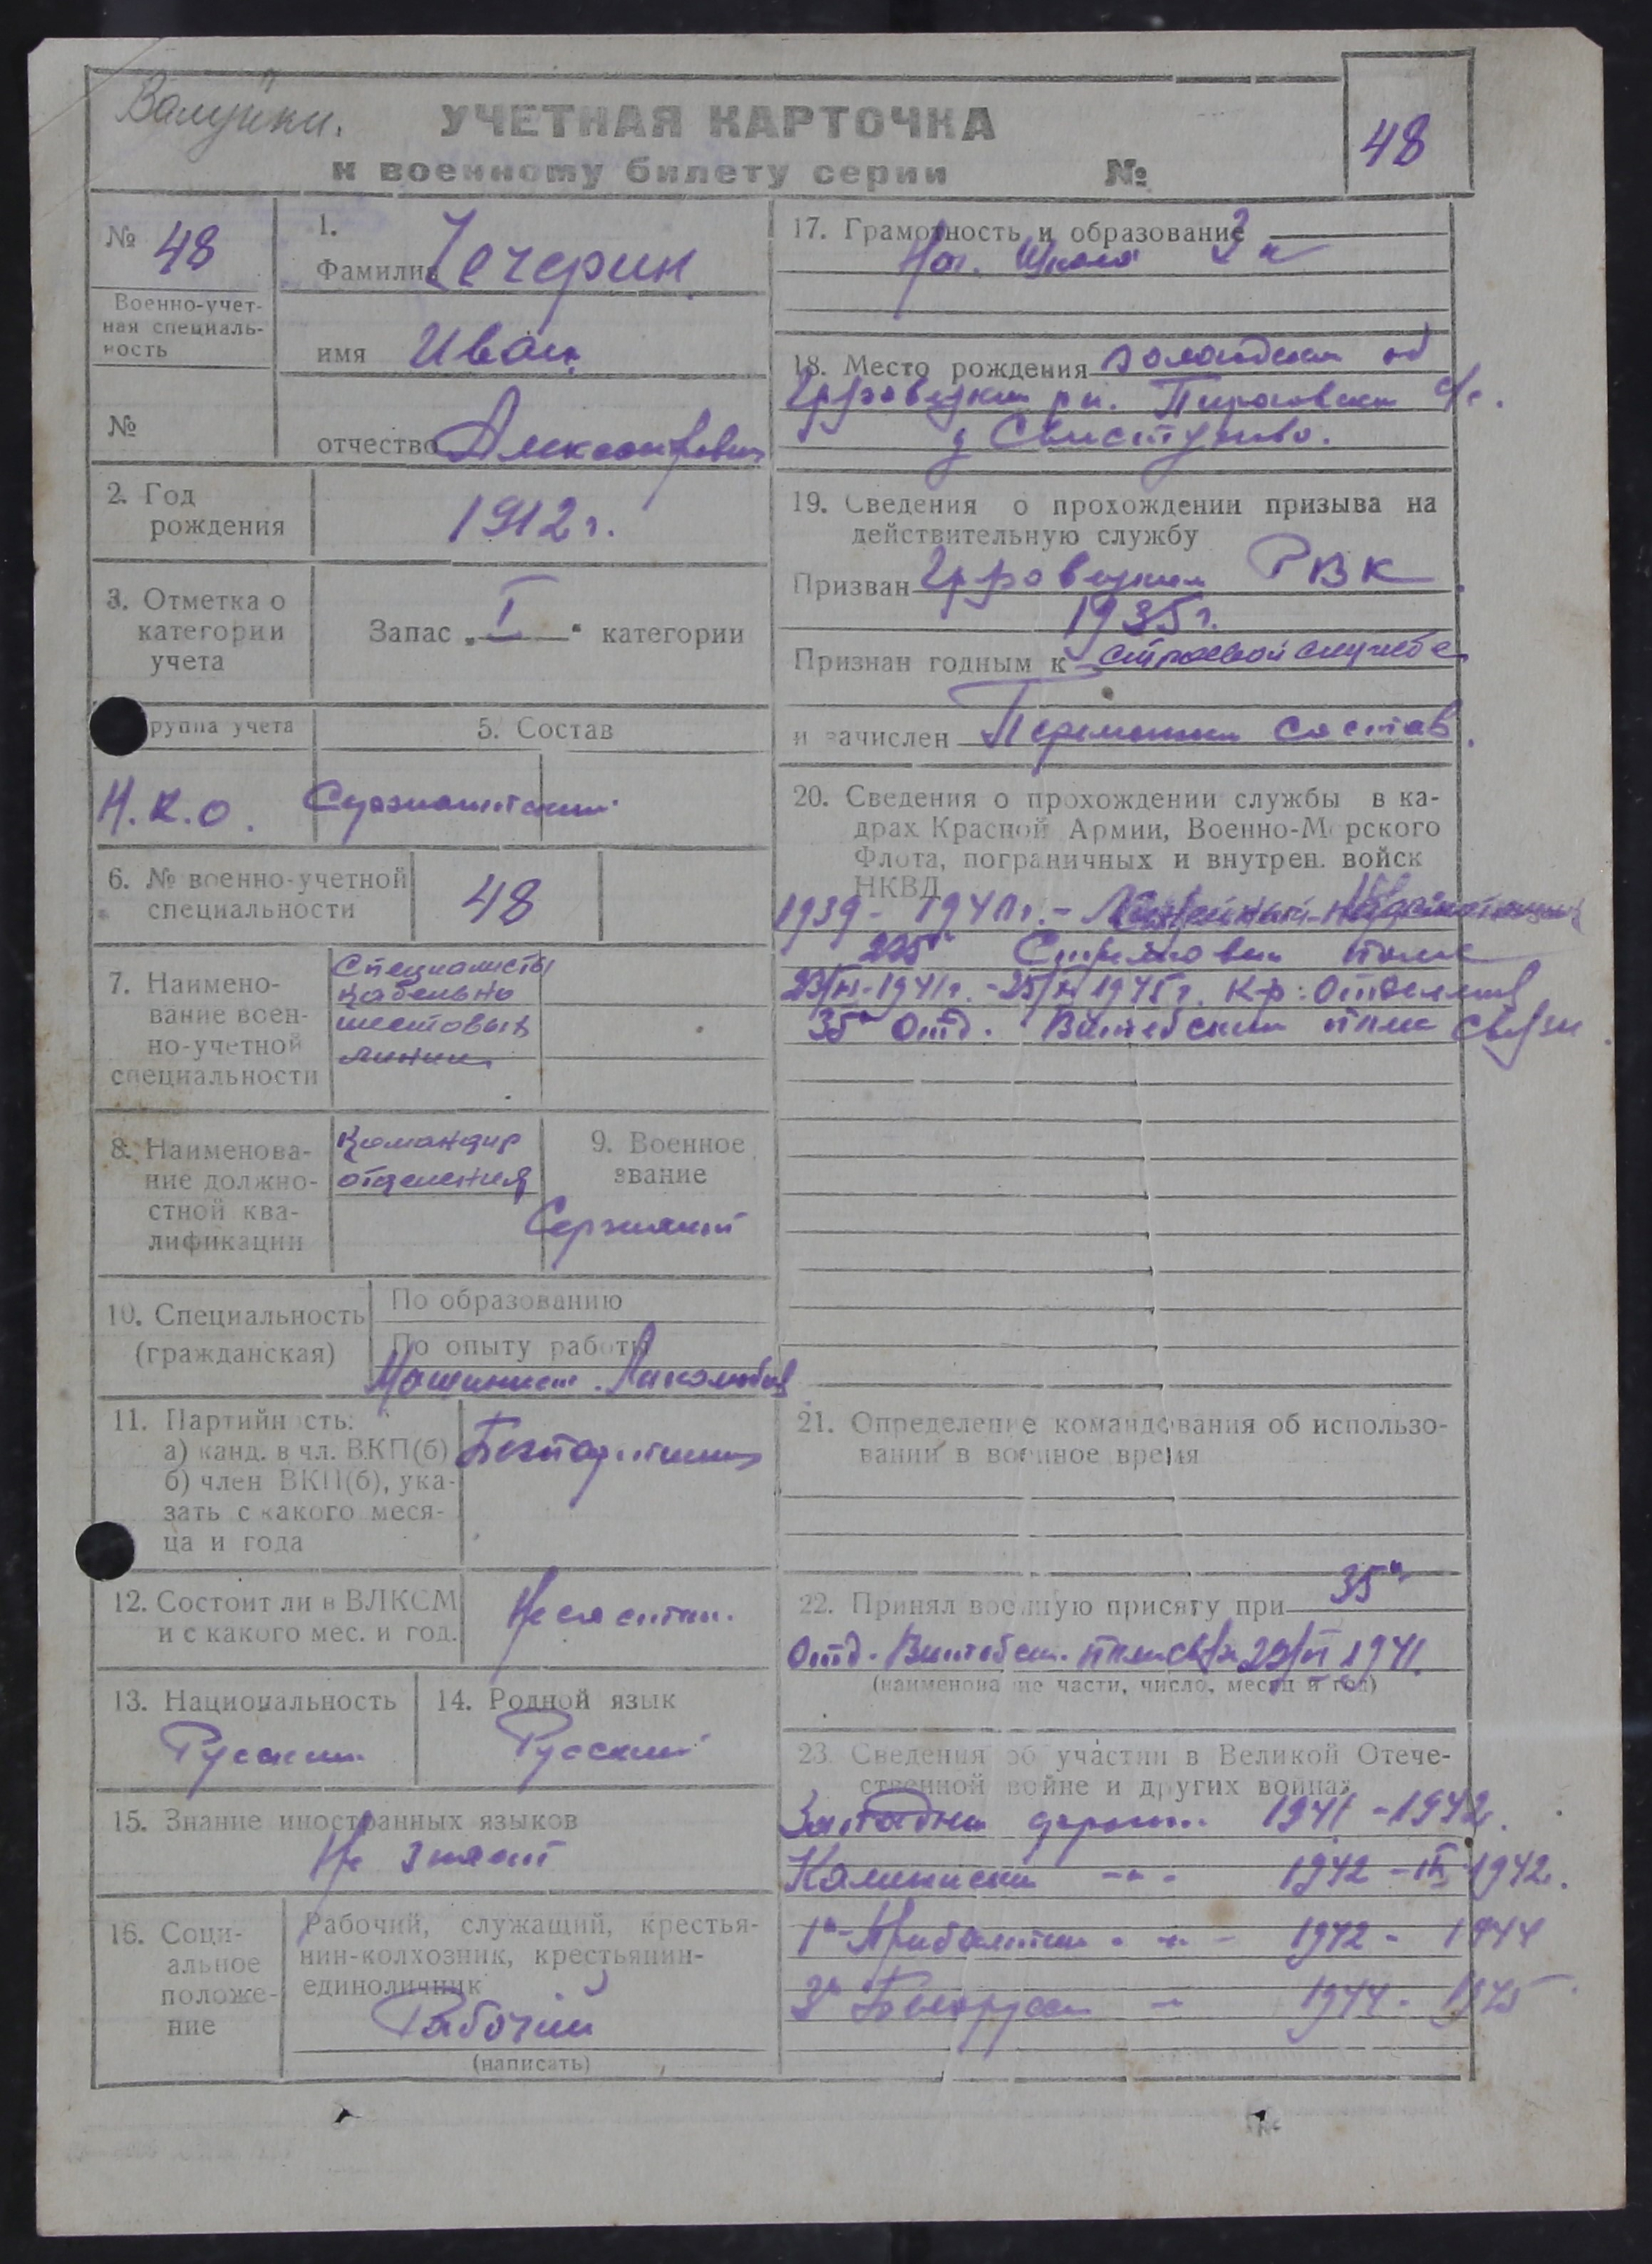 Валуйки.
УЧЕТНАЯ КАРТОЧКА
к военному билету серии №
48
№ 48
Военно-учет-
ная специаль-
ность
№
1.
Фамилия Чечерин
имя Иван
отчество Александрович
2. Год
рождения
1912 г.
3. Отметка о
категории
учета
Запас „ I “ категории
руппа учета
Н.К.О.
5. Состав
Сержантский
6. № военно-учетной
специальности
48
7. Наимено-
вание воен-
но-учетной
специальности
Специалисты
кабельно
шестовых
линий
8. Наименова-
ние должно-
стной ква-
лификации
Командир
отделения
9. Военное
звание
Сержант
10. Специальность
(гражданская)
По образованию
По опыту работы
Машинист
11. Партийность:
а) канд. в чл. ВКП(б)
б) член ВКП(б), ука-
зать с какого меся-
ца и года
12. Состоит ли в ВЛКСМ
и с какого мес. и год.
Не состоит.
13. Национальность
Русский
14. Родной язык
Русский
15. Знание иностранных языков
Не знает
16. Соци-
альное
положе-
ние
Рабочий, служащий, крестья-
нин-колхозник, крестьянин-
единоличник
Рабочий
(написать)
17. Грамотность и образование
Нач. школа 3 к
18. Место рождения
с/с.
д
19. Сведения о прохождении призыва на
действительную службу
Призван РВК
1935 г.
Признан годным к строевой службе
и зачислен состав.
20. Сведения о прохождении службы в ка-
драх Красной Армии, Военно-Морского
Флота, пограничных и внутрен. войск
НКВД
1939 -
225й Стрелковый полк
К-р: Отделения
35й отд. Витебский полк связи
21. Определение командования об использо-
вании в военное время
22. Принял военную присягу при 35й
отд. Витебск. 1941.
(наименование части, число, месяц и год)
23. Сведения об участии в Великой Отече-
ственной войне и других войнах
Западный 1941 - 1942.
Калининский -"- 1942 - 1942.
1й Прибалтийский -"- 1942 - 1944
3й Белорусский -"- 1944 - 1945